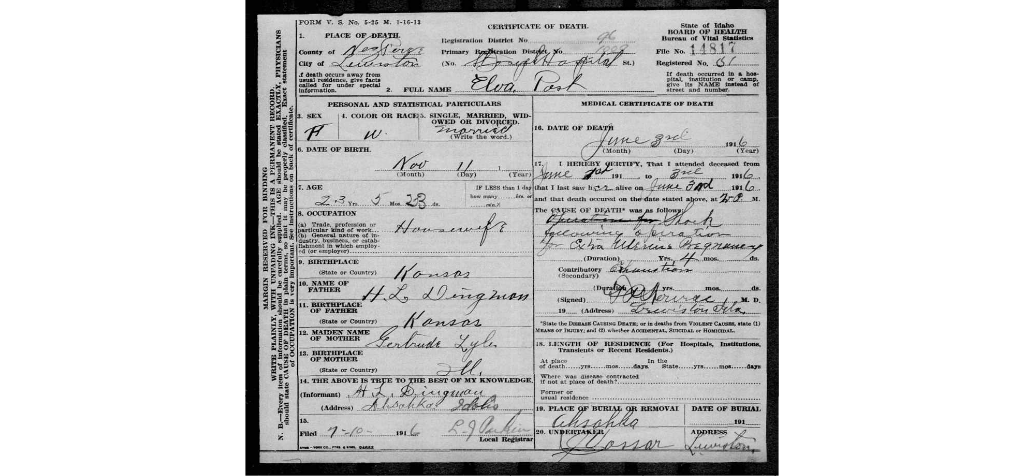 FORM V. S. No. 5-25 M. 1-16-13
CERTIFICATE OF DEATH.
State of Idaho
BOARD OF HEALTH
Bureau of Vital Statistics
1. PLACE OF DEATH.
Registration District No 96
County of Nez Perce
Primary Registration District No.
File No. 14817
City of Lewiston
(No. St Joseph Hospital St.)
Registered No. 61
If death occurs away from usual residence, give facts called for under special information.
2. FULL NAME Elva Post
If death occurred in a hospital, institution or camp, give its NAME instead of street and number.
MARGIN RESERVED FOR BINDING
WRITE PLAINLY, WITH UNFADING INK—THIS IS A PERMANENT RECORD.
N. B.—Every item of information should be carefully supplied. AGE should be stated EXACTLY. PHYSICIANS
should state CAUSE OF DEATH in plain terms, so that it may be properly classified. Exact statement
of OCCUPATION is very important. See instructions on back of certificate.
PERSONAL AND STATISTICAL PARTICULARS
3. SEX
4. COLOR OR RACE
5. SINGLE, MARRIED, WIDOWED OR DIVORCED.
F
W.
married
(Write the word.)
6. DATE OF BIRTH.
Nov 11 1
(Month) (Day) (Year)
7. AGE
IF LESS than 1 day
how many hrs. or
23 Yrs. 5 Mos. 23 ds. min.?
8. OCCUPATION
(a) Trade, profession or particular kind of work
Housewife
(b) General nature of industry, business, or establishment in which employed (or employer)
9. BIRTHPLACE
(State or Country) Kansas
10. NAME OF FATHER H. L. Dingman
11. BIRTHPLACE OF FATHER
(State or Country) Kansas
12. MAIDEN NAME OF MOTHER Gertrude Lyle
13. BIRTHPLACE OF MOTHER
(State or Country) Ill.
14. THE ABOVE IS TRUE TO THE BEST OF MY KNOWLEDGE
(Informant) H. L. Dingman
(Address) Ahsahka Idaho
15.
Filed 7-10- 1916
Local Registrar
MEDICAL CERTIFICATE OF DEATH
16. DATE OF DEATH
June 3rd 1916
(Month) (Day) (Year)
17. I HEREBY CERTIFY, That I attended deceased from
June 191 to 3rd 1916
that I last saw her alive on June 3rd 1916
and that death occurred on the date stated above, at M.
The CAUSE OF DEATH* was as follows:
Operation for Shock
following operation
for Extra Uterine Pregnancy
(Duration) Yrs. 4 mos. ds.
Contributory Exhaustion
(Secondary)
(Duration) yrs. mos. ds.
(Signed) M. D.
19 (Address) Lewiston Ida
*State the DISEASE CAUSING DEATH; or in deaths from VIOLENT CAUSES, state (1)
MEANS OF INJURY; and (2) whether ACCIDENTAL, SUICIDAL or HOMICIDAL.
18. LENGTH OF RESIDENCE (For Hospitals, Institutions, Transients or Recent Residents.)
At place of death yrs. mos. days
In the State yrs. mos. days
Where was disease contracted
if not at place of death?
Former or
usual residence
19. PLACE OF BURIAL OR REMOVAL
DATE OF BURIAL
Ahsahka
191
20. UNDERTAKER
ADDRESS
Vassar
Lewiston